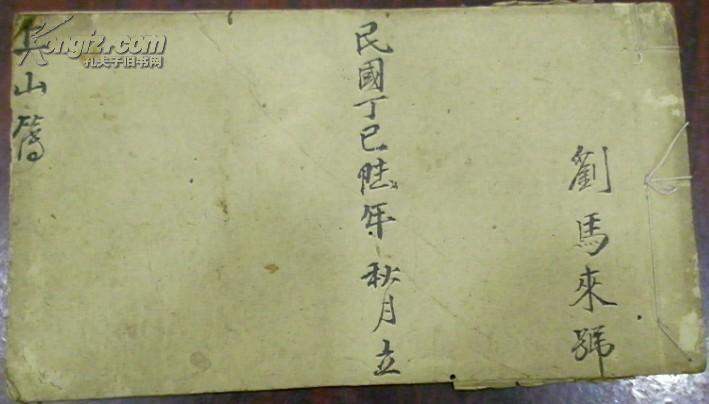 劉馬來號
民國丁巳陸年 秋月立
山簿
Kongfz.com
孔夫子旧书网